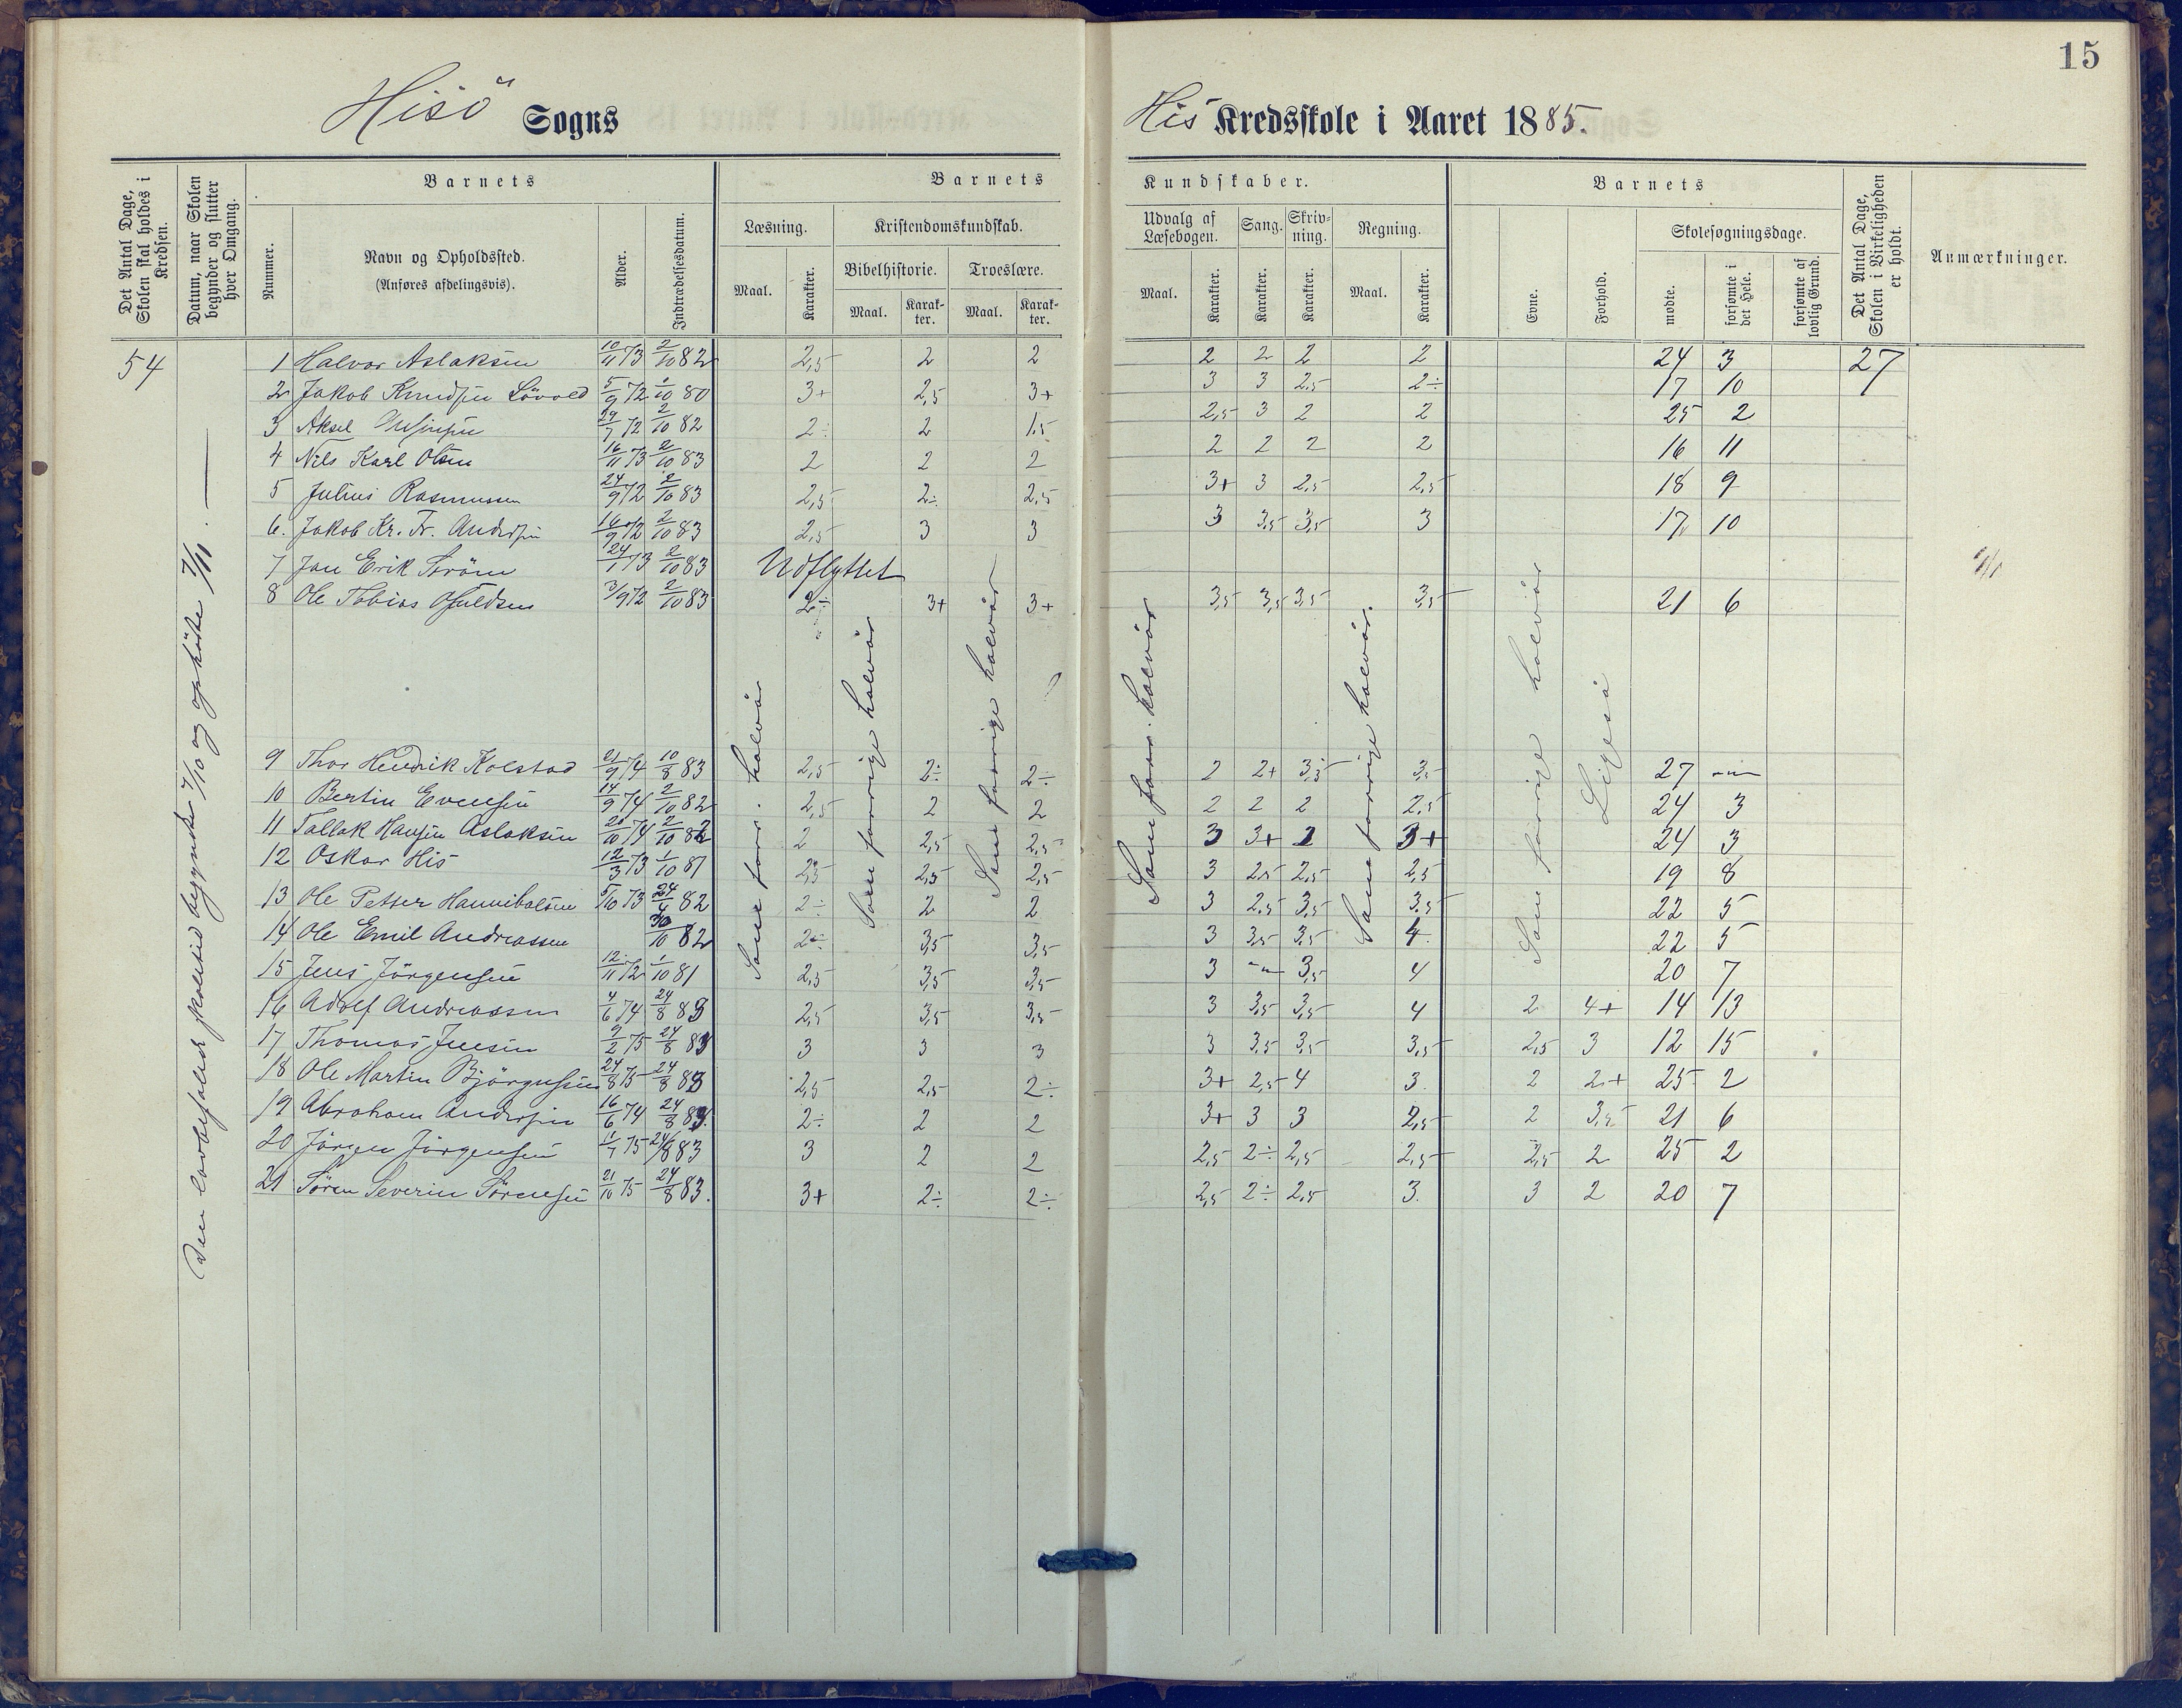 15
Hisö Sogns
His Kredsskole i Aaret 1885.
Det Antal Dage, Skolen skal holdes i Kredsen.
Datum, naar Skolen begynder og slutter hver Omgang.
Barnets
Nummer.
Navn og Opholdssted.
(Anføres afdelingsvis).
Alder.
Indtrædelsesdatum.
Barnets
Læsning.
Kristendomskundskab.
Maal.
Karakter.
Bibelhistorie.
Troeslære.
Maal.
Karak-ter.
Maal.
Karak-ter.
Kundskaber.
Udvalg af Læsebogen.
Sang.
Skriv-ning.
Regning.
Maal.
Karakter.
Karakter.
Karakter.
Maal.
Karakter.
Barnets
Evne.
Forhold.
Skolesøgningsdage.
mødte.
forsømte i det Hele.
forsømte af lovlig Grund.
Det Antal Dage, Skolen i Virkeligheden er holdt.
Anmærkninger.
54
Den lovbefalede skoletid begyndte 7/10 og ophörte 7/11.
1 Halvor Aslaksen 10/11 73 2/10 82 2,5 2 2 2 2 2 2 24 3 27
2 Jakob Knudsen Lövold 5/9 72 1/10 80 3+ 2,5 3+ 3 3 2,5 2÷ 17 10
3 Aksel 29/7 72 2/10 82 2÷ 2 1,5 2,5 3 2 2 25 2
4 Nils Karl Olsen 16/11 73 2/10 83 2 2 2 2 2 2 2 16 11
5 Julius Rasmussen 24/9 72 2/10 83 2,5 2÷ 2,5 3+ 3 2,5 2,5 18 9
6. Jakob Kr. Fr. Andersen 16/9 72 2/10 83 2,5 3 3 3 3,5 3,5 3 17 10
7 Jan Erik Ström 24/1 73 2/10 83 Udflyttet
8 Ole Tobias Osuldsen 3/9 72 2/10 83 2÷ 3+ 3+ 3,5 3,5 3,5 3,5 21 6
Som forr. halvår
Som forrige halvår
Som forrige halvår
Som forr. halvår
Som forrige halvår.
Som forrige halvår
Ligeså
9 Thor Hendrik Kolstad 21/9 74 10/8 83 2,5 2÷ 2÷ 2 2+ 3,5 3,5 27 -„-
10 Bertin Evensen 14/9 74 2/10 82 2,5 2 2 2 2 2 2,5 24 3
11 Tallak Hansen Aslaksen 20/10 74 2/10 82 2 2,5 2,5 3 3+ 2 3+ 24 3
12 Oskar His 12/3 73 1/10 81 2,5 2,5 2,5 3 2,5 2,5 2,5 19 8
13 Ole Petter Hannibalsen 5/10 73 24/4 82 2÷ 2 2 3 2,5 3,5 3,5 22 5
14 Ole Emil Andreassen 30/10 82 2÷ 3,5 3,5 3 3,5 3,5 4 22 5
15 Jens Jörgensen 12/11 72 1/10 81 2,5 3,5 3,5 3 -„- 3,5 4 20 7
16 Adolf Andreassen 4/6 74 24/8 83 2,5 3,5 3,5 3 3,5 3,5 4 2 4+ 14 13
17 Thomas Jensen 9/2 75 24/8 83 3 3 3 3 3,5 3,5 3,5 2,5 3 12 15
18 Ole Martin Bjørgusen 24/8 75 24/8 83 2,5 2,5 2÷ 3+ 2,5 4 3. 2 2+ 25 2
19 Abraham Andersen 16/6 74 24/8 83. 2÷ 2 2 3+ 3 3 2,5 2 3,5 21 6
20 Jörgen Jörgensen 11/7 75 24/8 83 3 2 2 2,5 2÷ 2,5 2,5 2,5 2 25 2
21 Sören Severin Sörensen 21/10 75 24/8 83. 3+ 2÷ 2÷ 2,5 2÷ 2,5 3. 3 2 20 7